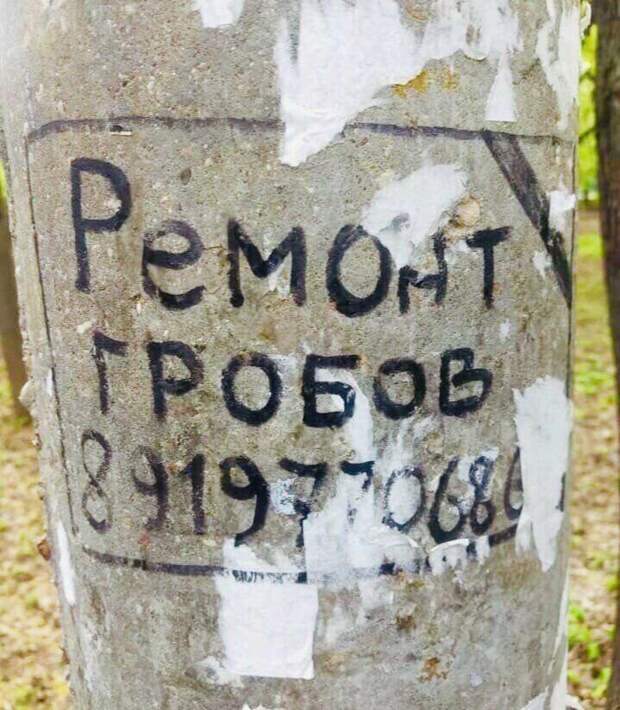 Ремонт
гробов
8919770686